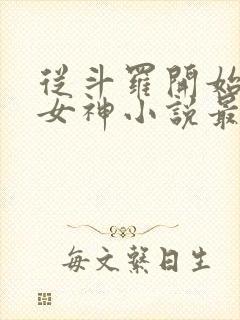 從斗羅開始
女神小說最
每文繫日生